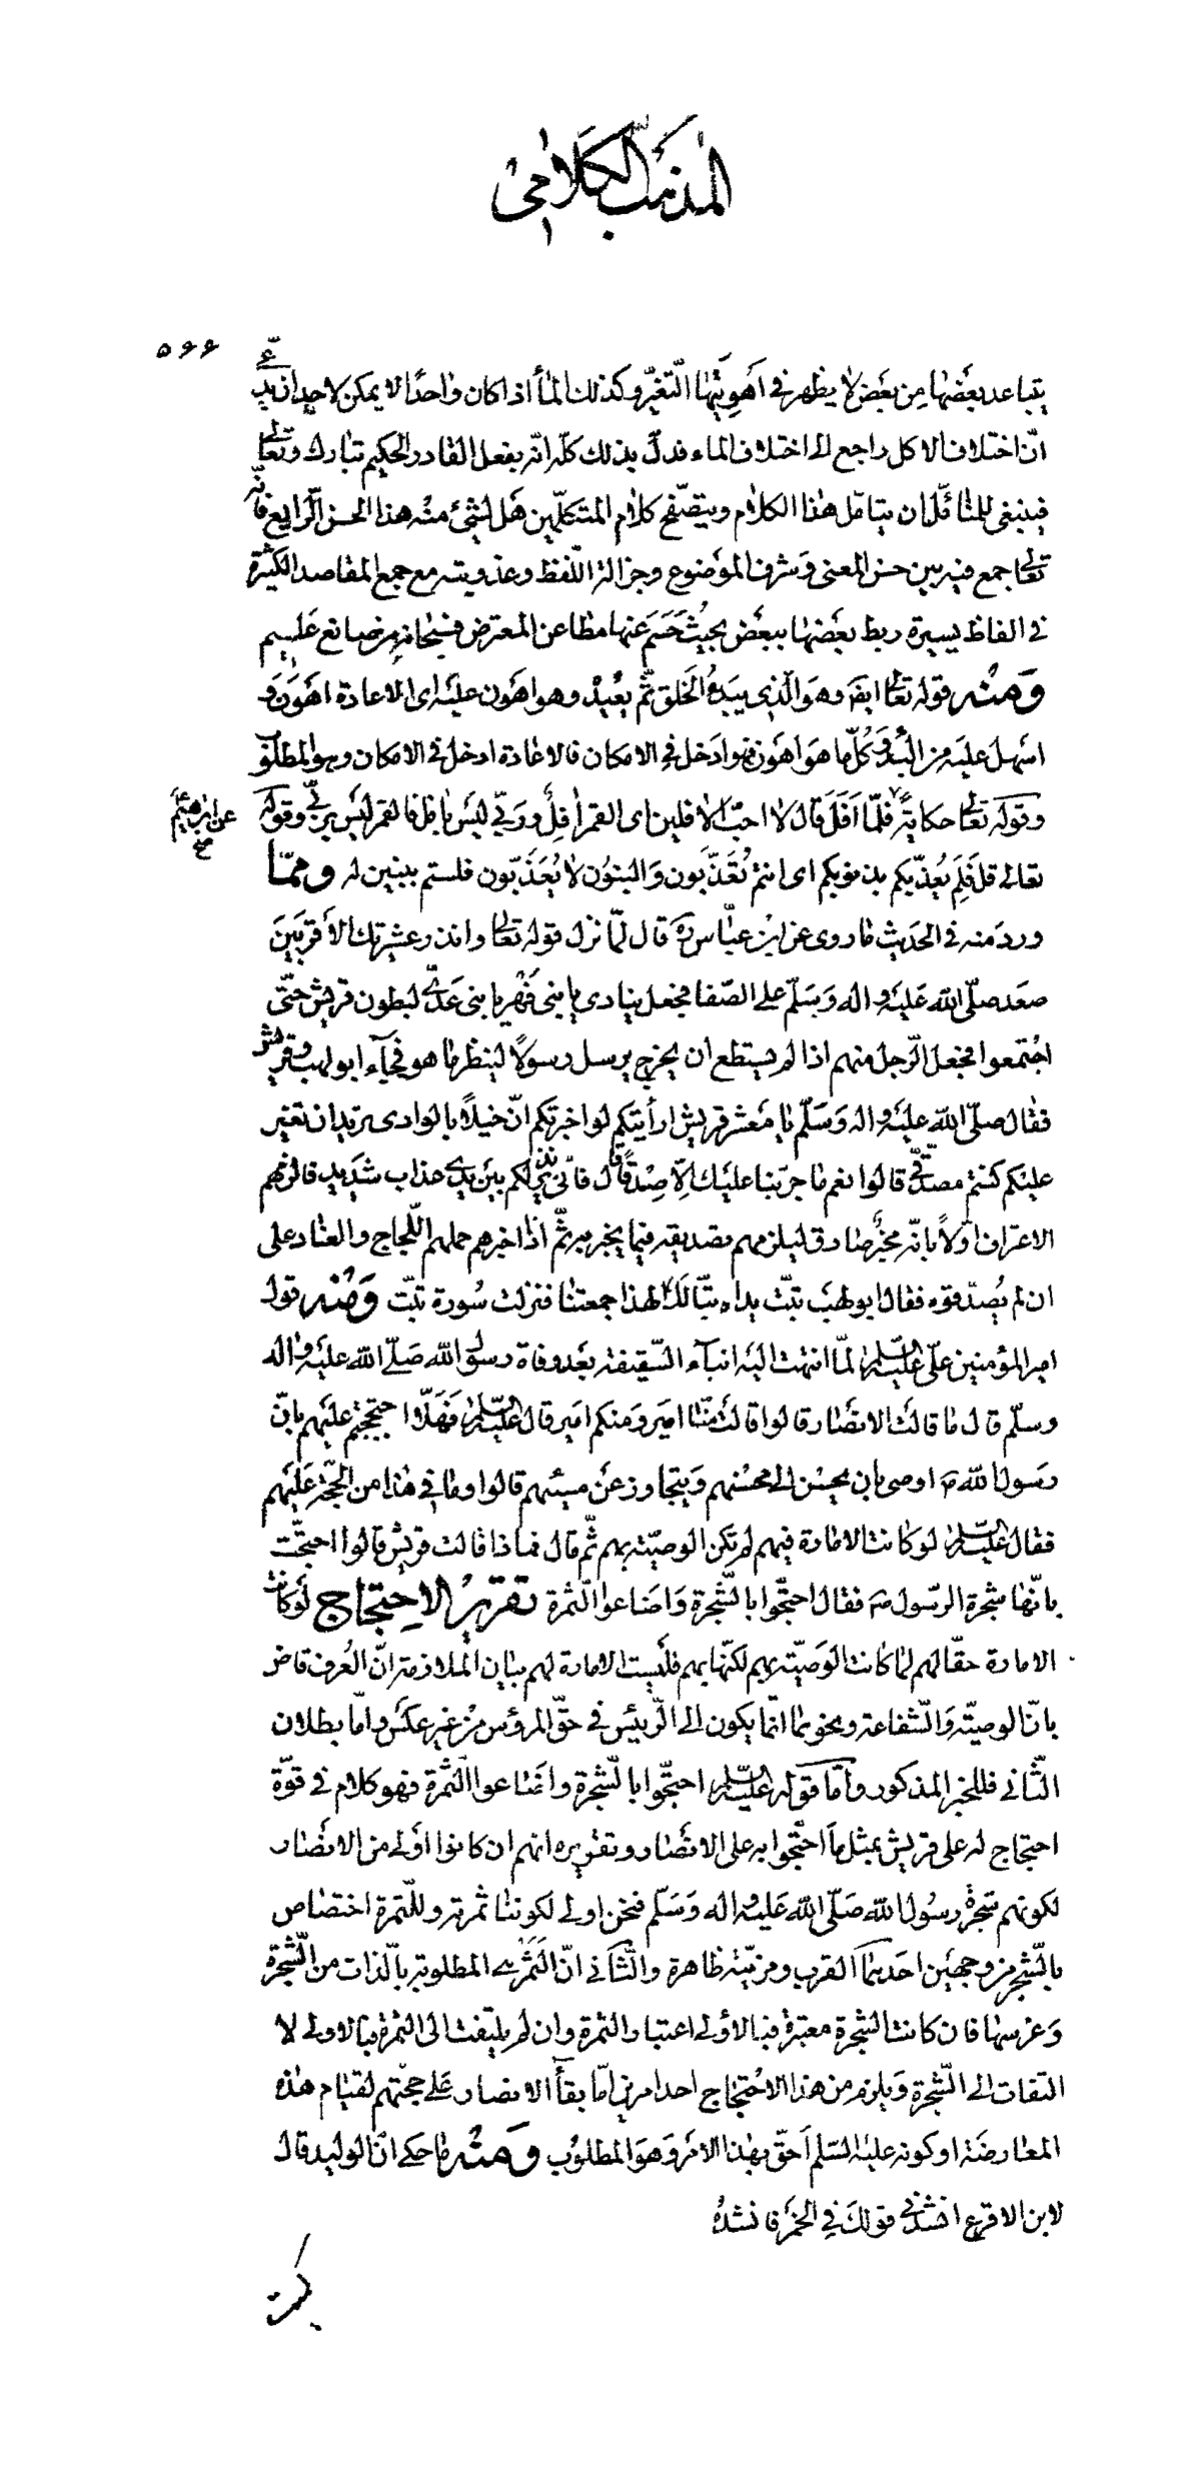 المذهب الكلامي
٥٦٦
يتباعد بعضها من بعض لا يظهر في اهويتها التغيّر وكذلك الماء اذا كان واحدًا لا يمكن لاحد ان يدّعي
انّ اختلاف الاكل راجع الى اختلاف الماء فدلّ بذلك كلّه انّه بفعل القادر الحكيم تبارك وتعالى
فينبغي للمتأمّل ان يتامّل هذا الكلام ويتصفّح كلام المتكلّمين هل لشيء منه هذا الحسن الرّايع فانّه
تعالى جمع فيه بين حسن المعنى وشرف الموضوع وجزالة اللّفظ وعذوبته مع جمع المقاصد الكثيرة
في الفاظ يسيرة ربط بعضها ببعض بحيث حَسَمَ عنها مطاعن المعترض فسبحانه من صانع عليم
ومنه قوله تعالى ايضًا وهو الّذي يبدؤ الخلق ثمّ يعيده وهو اهون عليه اى الاعادة اهون و
اسهل عليه من البدء وكلّ ما هو اهون فهو ادخل في الامكان فالاعادة ادخل في الامكان وهو المطلوب
وقوله تعالى حكاية فلمّا افل قال لا احبّ الافلين اى القمر افل وربّي ليس بافل فالقمر ليس بربّي وقوله
عن ابرهيم صح
تعالى قل فلم يعذّبكم بذنوبكم اى انتم تُعَذَّبون والبنون لا يُعَذَّبون فلستم ببنين له وممّا
ورد منه في الحديث ما روى عن ابن عبّاس ره قال لمّا نزل قوله تعالى وانذر عشيرتك الأقربين
صعد صلّى الله عليه واله وسلّم على الصّفا فجعل ينادى يا بني فهر يا بني عدىّ لبطون قريش حتّى
اجتمعوا فجعل الرّجل منهم اذا لم يستطع ان يخرج يرسل رسولًا لينظر ما هو فجآء ابو لهب وقريش
فقال صلّى الله عليه واله وسلّم يا معشر قريش ارأيتكم لو اخبرتكم انّ خيلًا بالوادى تريد ان تغير
عليكم كنتم مصدّقىّ قالوا نعم ما جربنا عليك الّا صدقًا قال فانّي نذير لكم بين يدى عذاب شديد فالزمهم
الاعتراف اوّلًا بانّه مخبر صادق ليلزمهم تصديقه فيما يخبر به ثمّ اذا اخبرهم حملهم اللّجاج والعناد على
ان لم يصدّقوه فقال ابو لهب تبّت يداه تبًّا لك الهذا جمعتنا فنزلت سورة تبّت ومنه قول
امير المؤمنين علىّ عليه السّلام لمّا انتهت اليه انبآء السّقيفة بعد وفاة رسول الله صلّى الله عليه واله
وسلّم قال ما قالت الانصار قالوا قالت منّا امير ومنكم امير قال عليه السّلام فهلّا احتججتم عليهم بانّ
رسول الله ص اوصى بان يحسن الى محسنهم ويتجاوز عن مسيئهم قالوا وما في هذا من الحجّة عليهم
فقال عليه السّلام لو كانت الامارة فيهم لم تكن الوصيّة بهم ثمّ قال فماذا قالت قريش قالوا احتجّت
بانّها شجرة الرّسول ص فقال احتجّوا بالشّجرة واضاعوا الثّمرة تقرير الاحتجاج لو كانت
الامارة حقّا لهم لما كانت الوصيّة بهم لكنّها بهم فليست الامارة لهم بيان الملازمة انّ العُرف قاض
بانّ الوصيّة والشّفاعة ونحوهما انّما يكون الى الرّئيس في حقّ المرؤس من غير عكس وامّا بطلان
الثّاني فللخبر المذكور وامّا قوله عليه السّلام احتجّوا بالشّجرة واضاعوا الثّمرة فهو كلام في قوّة
احتجاج له على قريش بمثل ما احتجّوا به على الانصار وتقريره انهم ان كانوا اولى من الانصار
لكونهم شجرة رسول الله صلّى الله عليه واله وسلّم فنحن اولى لكوننا ثمرته وللثّمرة اختصاص
بالشّجر من وجهين احدهما القرب ومزيّته ظاهرة والثّاني انّ الثّمرة هي المطلوبة بالّذات من الشّجرة
وغرسها فان كانت الشجرة معتبرة فبالأولى اعتبار الثمرة وان لم يلتفت الى الثمرة فبالاولى لا
التفات الى الشّجرة ويلزم من هذا الاحتجاج احد امرين امّا بقاء الانصار على حجّتهم لقيام هذه
المعارضة او كونه عليه السّلم احقّ بهذا الامر وهو المطلوب ومنه ما حكى انّ الوليد قال
لابن الاقرع انشدني قولك في الخمر فانشده
كميت